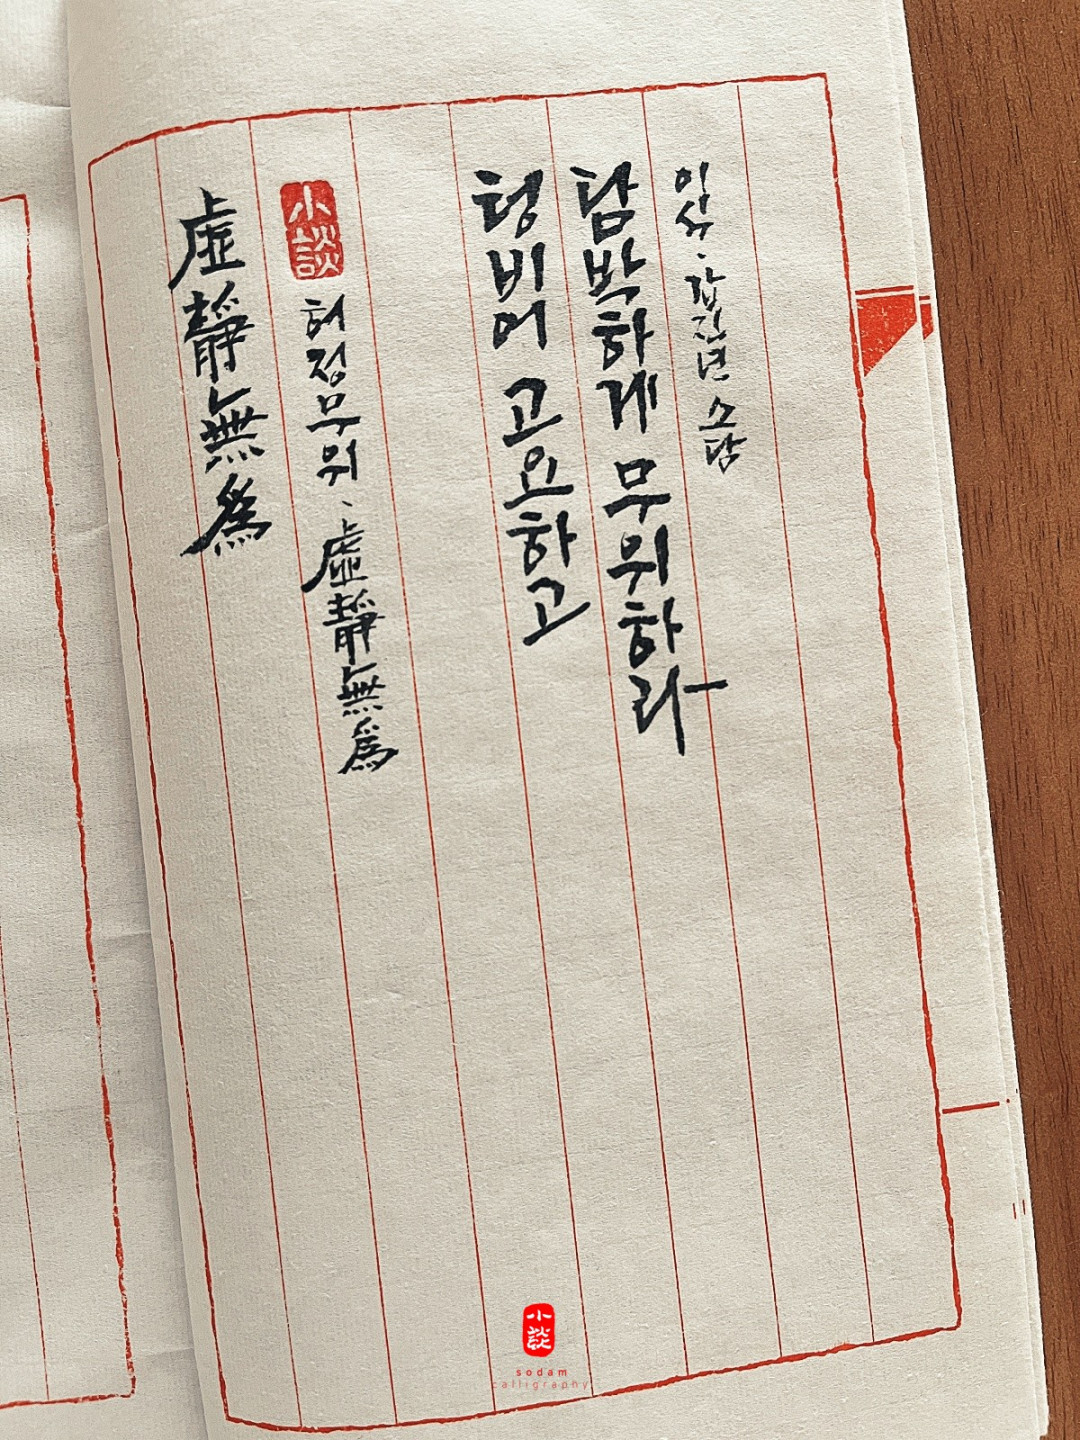 虛靜無爲
小談
허정무위、虛靜無爲
텅 비어 고요하고
담박하게 무위하라
갑진년 소담
小談
sodam
calligraphy